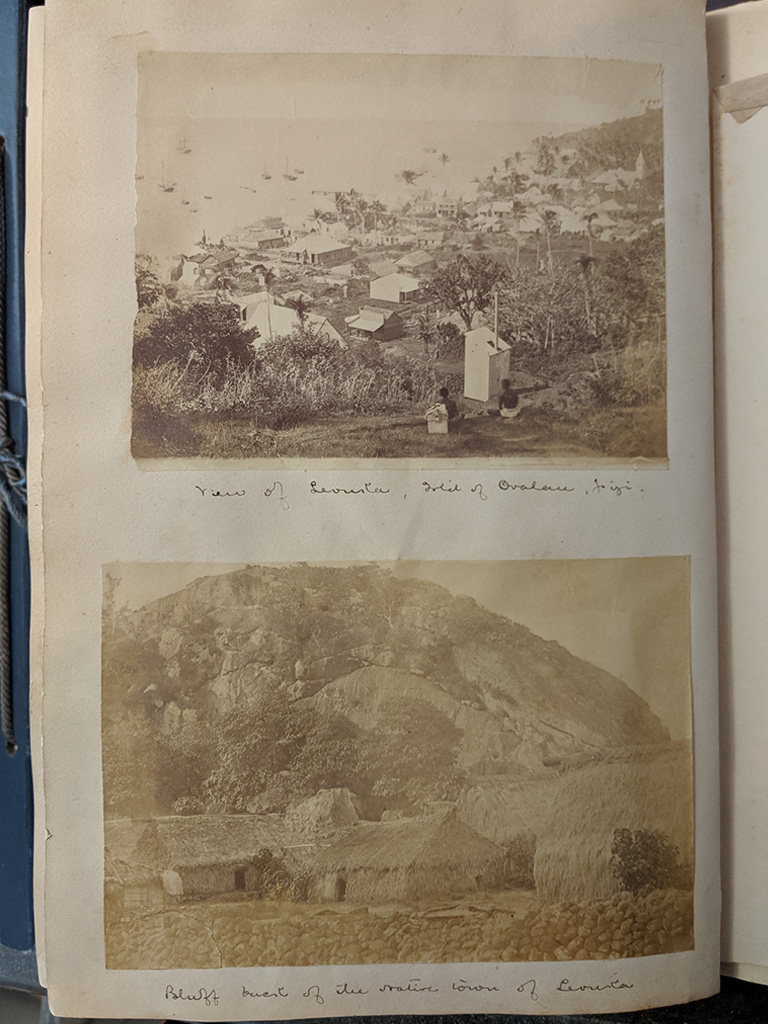 View of Levuka, Isld of Ovalau, Fiji.
Bluff back of the native town of Levuka